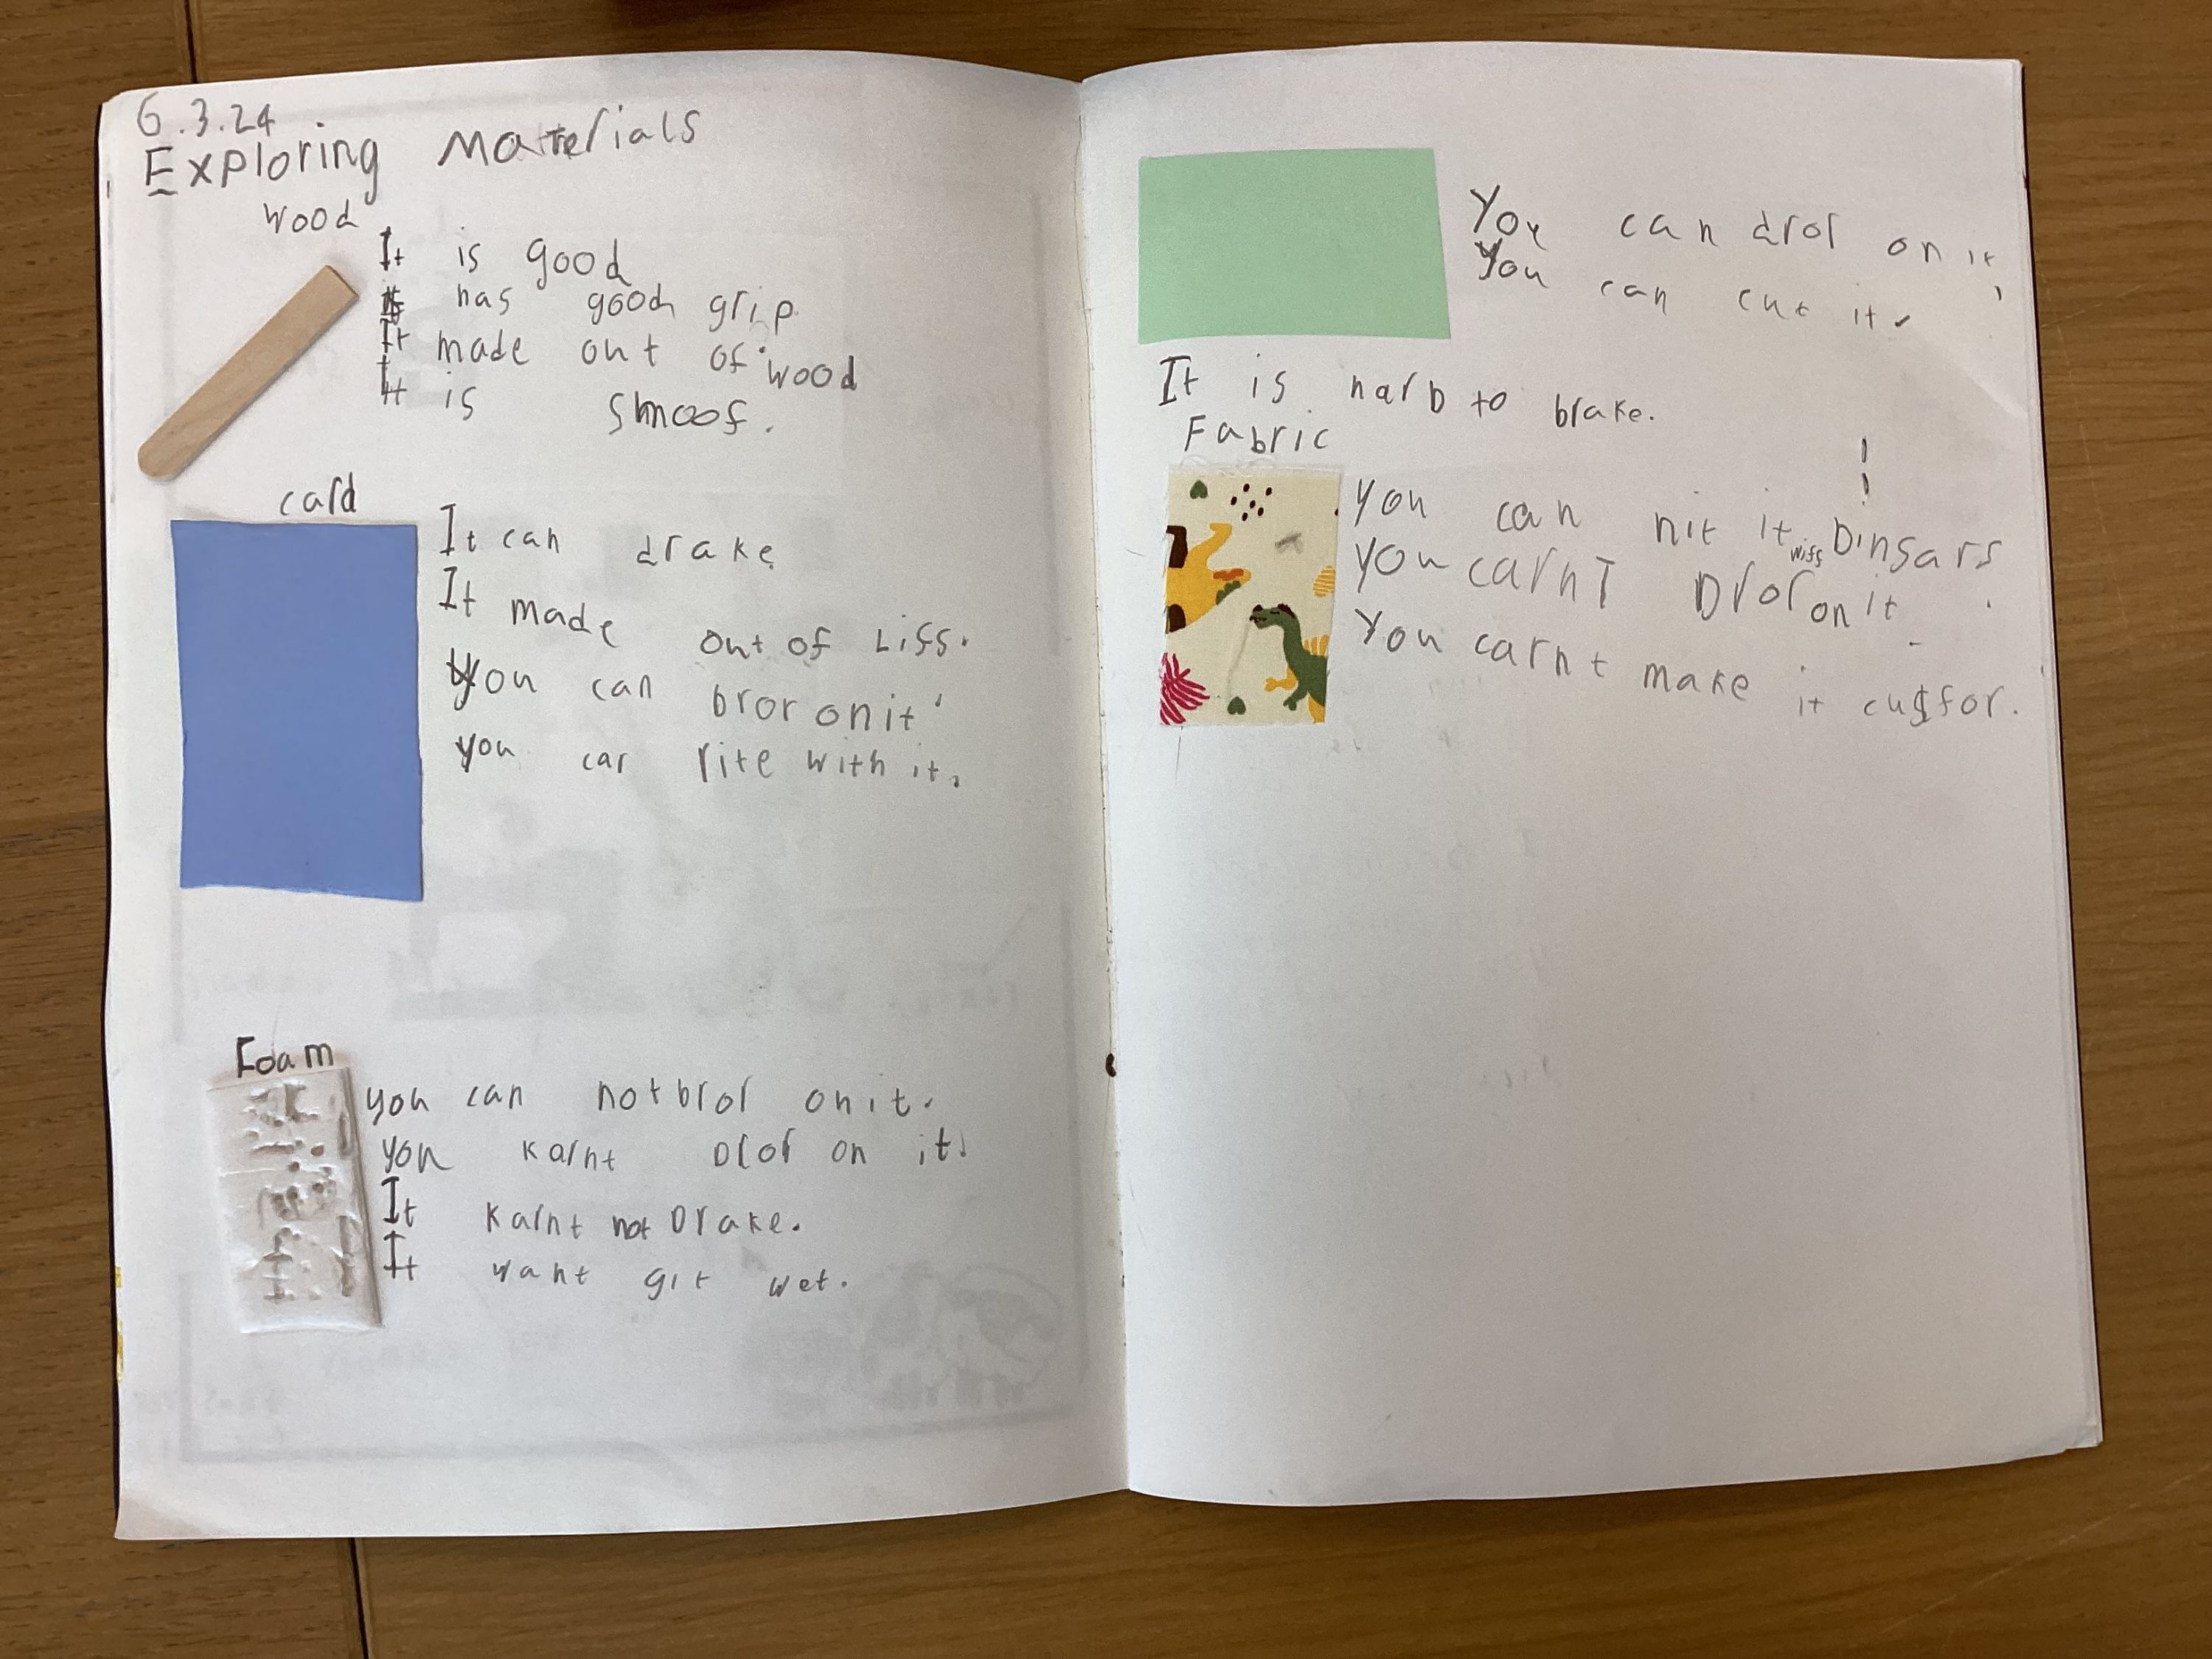 6.3.24
Exploring Materials
Wood
It is good
It has good grip
It made out of wood
It is Smoof.
card
It can drake
It made out of Liff.
You can bror on it
you car rite with it.
Foam
you can not bror on it.
you karnt Dror on it.
It karnt not Drake.
It want git wet.
You can dror on it,
You can cut it.
It is harb to brake.
Fabric
you can nit it wiff Dinsars
you carnt Dror on it.
You carnt make it cusfor.